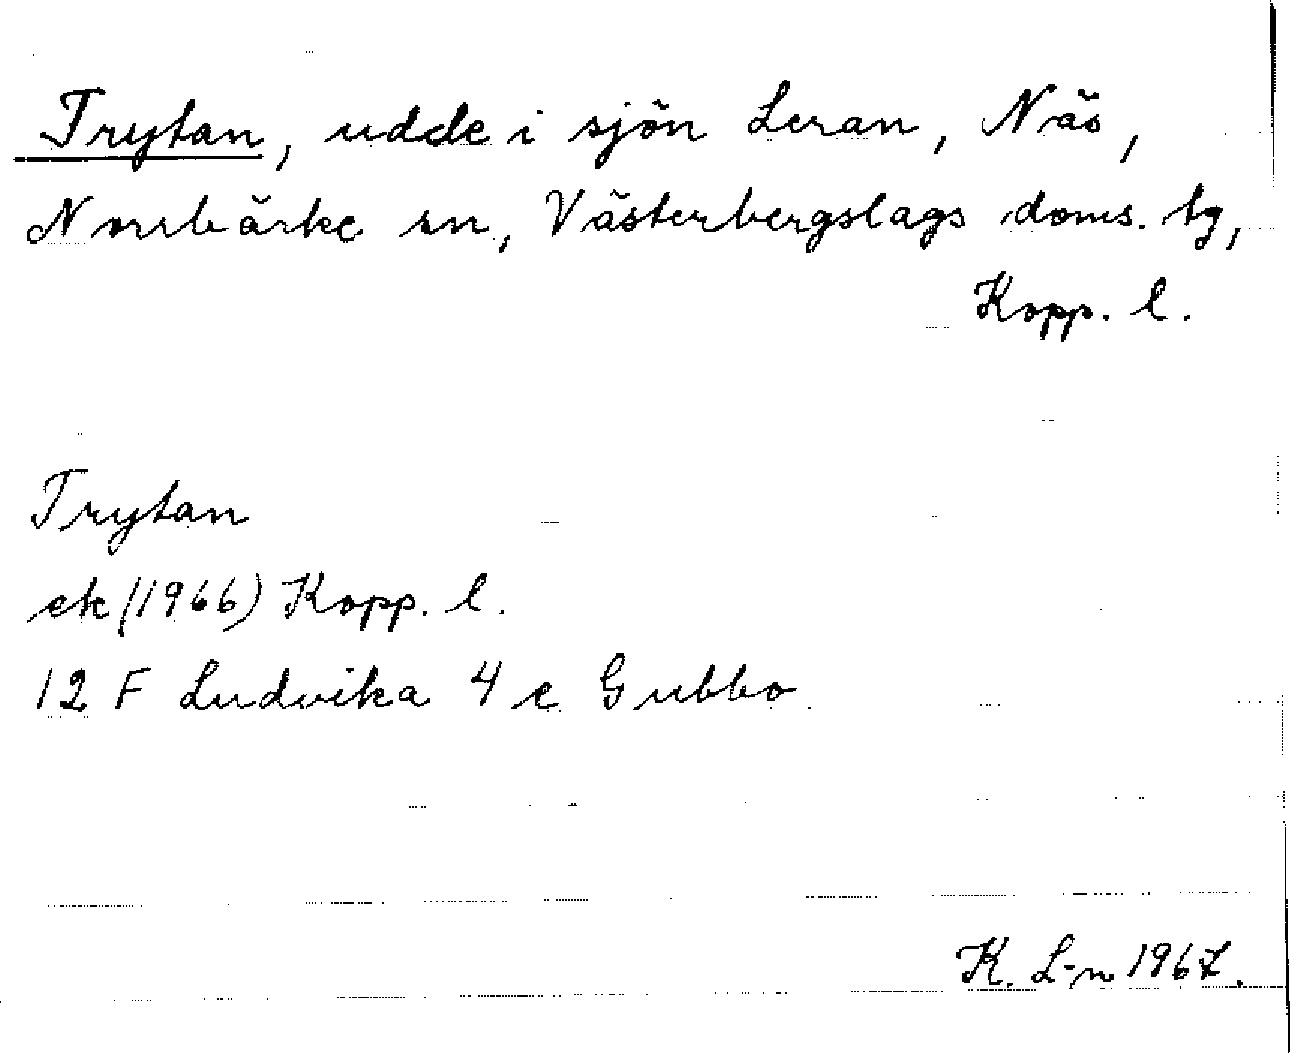 Trytan, udde i sjön Leran, Näs,
Norrbärke sn, Västerbergslags doms. tg,
Kopp. l.
Trytan
ek (1966) Kopp. l.
12 F Ludvika 4 e Gubbo
K. L-n 1967.